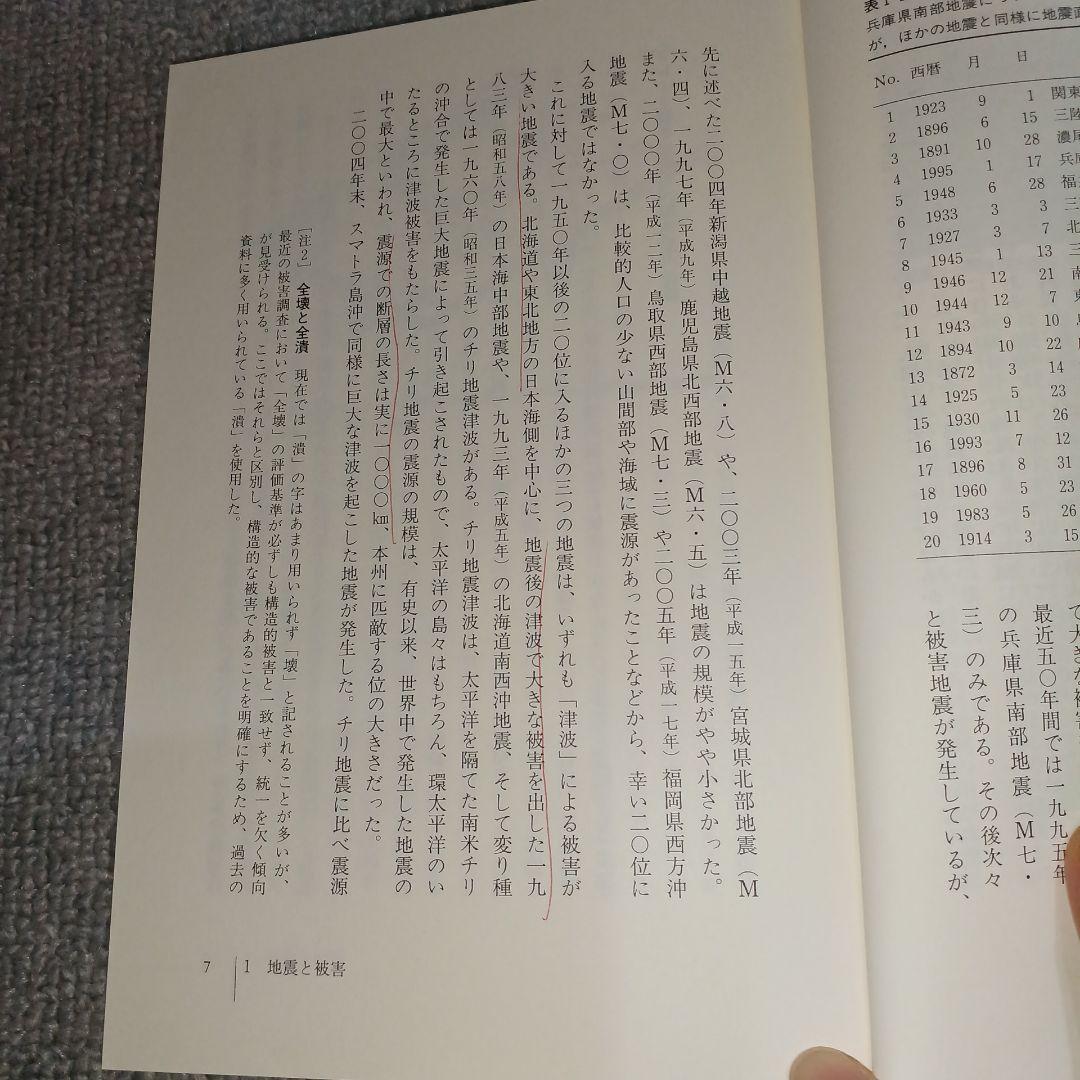 表1
兵庫県南部地震に
が，ほかの地震と同様に地震直
No. 西暦 月 日
1 1923 9 1 関東
2 1896 6 15 三陸
3 1891 10 28 濃尾
4 1995 1 17 兵庫
5 1948 6 28 福
6 1933 3 3 三
7 1927 3 7 北
8 1945 1 13 三
9 1946 12 21 南
10 1944 12 7 東
11 1943 9 10 鳥
12 1894 10 22
13 1872 3 14
14 1925 5 23
15 1930 11 26
16 1993 7 12
17 1896 8 31
18 1960 5 23
19 1983 5 26
20 1914 3 15
最近五〇年間では一九九五年
の兵庫県南部地震（M七・
三）のみである。その後次々
と被害地震が発生しているが、
先に述べた二〇〇四年新潟県中越地震（M六・八）や、二〇〇三年（平成一五年）宮城県北部地震（M
六・四）、一九九七年（平成九年）鹿児島県北西部地震（M六・五）は地震の規模がやや小さかった。
また、二〇〇〇年（平成一二年）鳥取県西部地震（M七・三）や二〇〇五年（平成一七年）福岡県西方沖
地震（M七・〇）は、比較的人口の少ない山間部や海域に震源があったことなどから、幸い二〇位に
入る地震ではなかった。
これに対して一九五〇年以後の二〇位に入るほかの三つの地震は、いずれも「津波」による被害が
大きい地震である。北海道や東北地方の日本海側を中心に、地震後の津波で大きな被害を出した一九
八三年（昭和五八年）の日本海中部地震や、一九九三年（平成五年）の北海道南西沖地震、そして変り種
としては一九六〇年（昭和三五年）のチリ地震津波がある。チリ地震津波は、太平洋を隔てた南米チリ
の沖合で発生した巨大地震によって引き起こされたもので、太平洋の島々はもちろん、環太平洋のい
たるところに津波被害をもたらした。チリ地震の震源の規模は、有史以来、世界中で発生した地震の
中で最大といわれ、震源での断層の長さは実に一〇〇〇㎞、本州に匹敵する位の大きさだった。
二〇〇四年末、スマトラ島沖で同様に巨大な津波を起こした地震が発生した。チリ地震に比べ震源
［注2］ 全壊と全潰 現在では「潰」の字はあまり用いられず「壊」と記されることが多いが、
最近の被害調査において「全壊」の評価基準が必ずしも構造的被害と一致せず、統一を欠く傾向
が見受けられる。ここではそれらと区別し、構造的な被害であることを明確にするため、過去の
資料に多く用いられている「潰」を使用した。
7 I 地震と被害